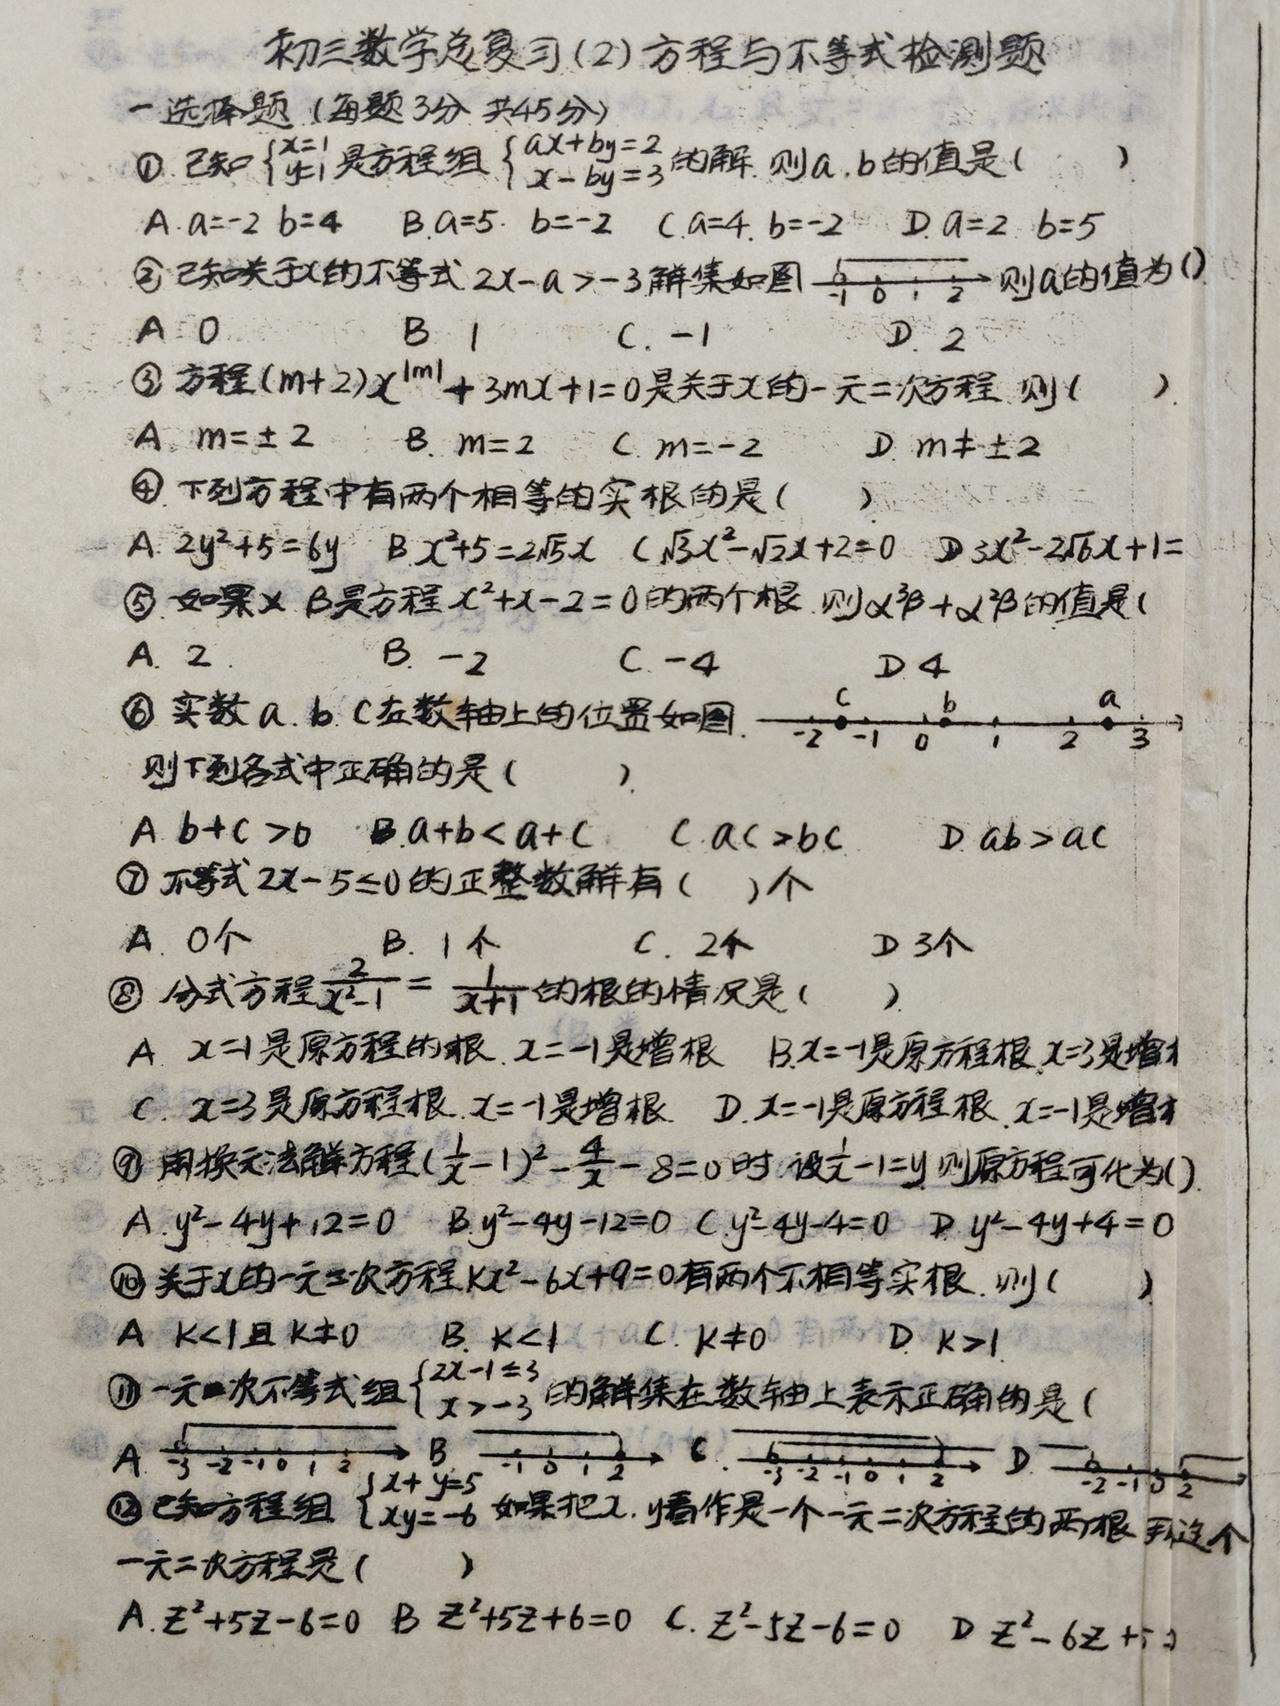 初三数学总复习(2)方程与不等式检测题
一 选择题 (每题3分 共45分)
① 已知{x=1 y=1 是方程组 {ax+by=2 x-by=3 的解. 则a.b的值是( )
A.a=-2 b=4 B.a=5. b=-2 C.a=4. b=-2 D.a=2. b=5
② 已知关于x的不等式 2x-a>-3解集如图 -1 0 1 2 则a的值为()
A 0 B 1 C. -1 D. 2
③ 方程(m+2)x^|m|+3mx+1=0是关于x的一元二次方程 则( ).
A m=±2 B. m=2 C. m=-2 D. m≠±2
④ 下列方程中有两个相等的实根的是( ).
A. 2y²+5=6y B.x²+5=2√5x C √3x²-√2x+2=0 D 3x²-2√6x+1=
⑤ 如果α β是方程x²+x-2=0的两个根. 则α³β+α²β的值是(
A. 2. B. -2 C. -4 D 4
⑥ 实数a.b.C在数轴上的位置如图. -2 c -1 0 b 1 2 a 3
则下列各式中正确的是( ).
A b+c>0 B.a+b<a+c C.ac>bc. D.ab>ac
⑦ 不等式2x-5≤0的正整数解有( )个
A. 0个 B. 1个 C. 2个 D 3个
⑧ 分式方程2/(x²-1)=1/(x+1)的根的情况是( ).
A. x=1是原方程的根. x=-1是增根 B.x=-1是原方程根.x=3是增
C. x=3是原方程根.x=-1是增根 D.x=-1是原方程根.x=-1是增
⑨ 用换元法解方程(1/x-1)²-4/x-8=0时.设1/x-1=y则原方程可化为().
A.y²-4y+12=0 B.y²-4y-12=0 C.y²-4y-4=0 D.y²-4y+4=0
⑩ 关于x的一元二次方程kx²-6x+9=0有两个不相等实根.则( ).
A K<1且K≠0 B. K<1 C. K≠0 D. K>1
⑪ 一元二次不等式组{2x-1≤3 x>-3 的解集在数轴上表示正确的是(
A. -3 -2 -1 0 1 2 B. -1 0 1 2 C. -3 -2 -1 0 1 2 D. -2 -1 0 2
⑫ 已知方程组{x+y=5 xy=-6 如果把x.y看作是一个一元二次方程的两根 那这个
一元二次方程是( )
A.z²+5z-6=0 B z²+5z+6=0 C. z²-5z-6=0 D z²-6z+5=